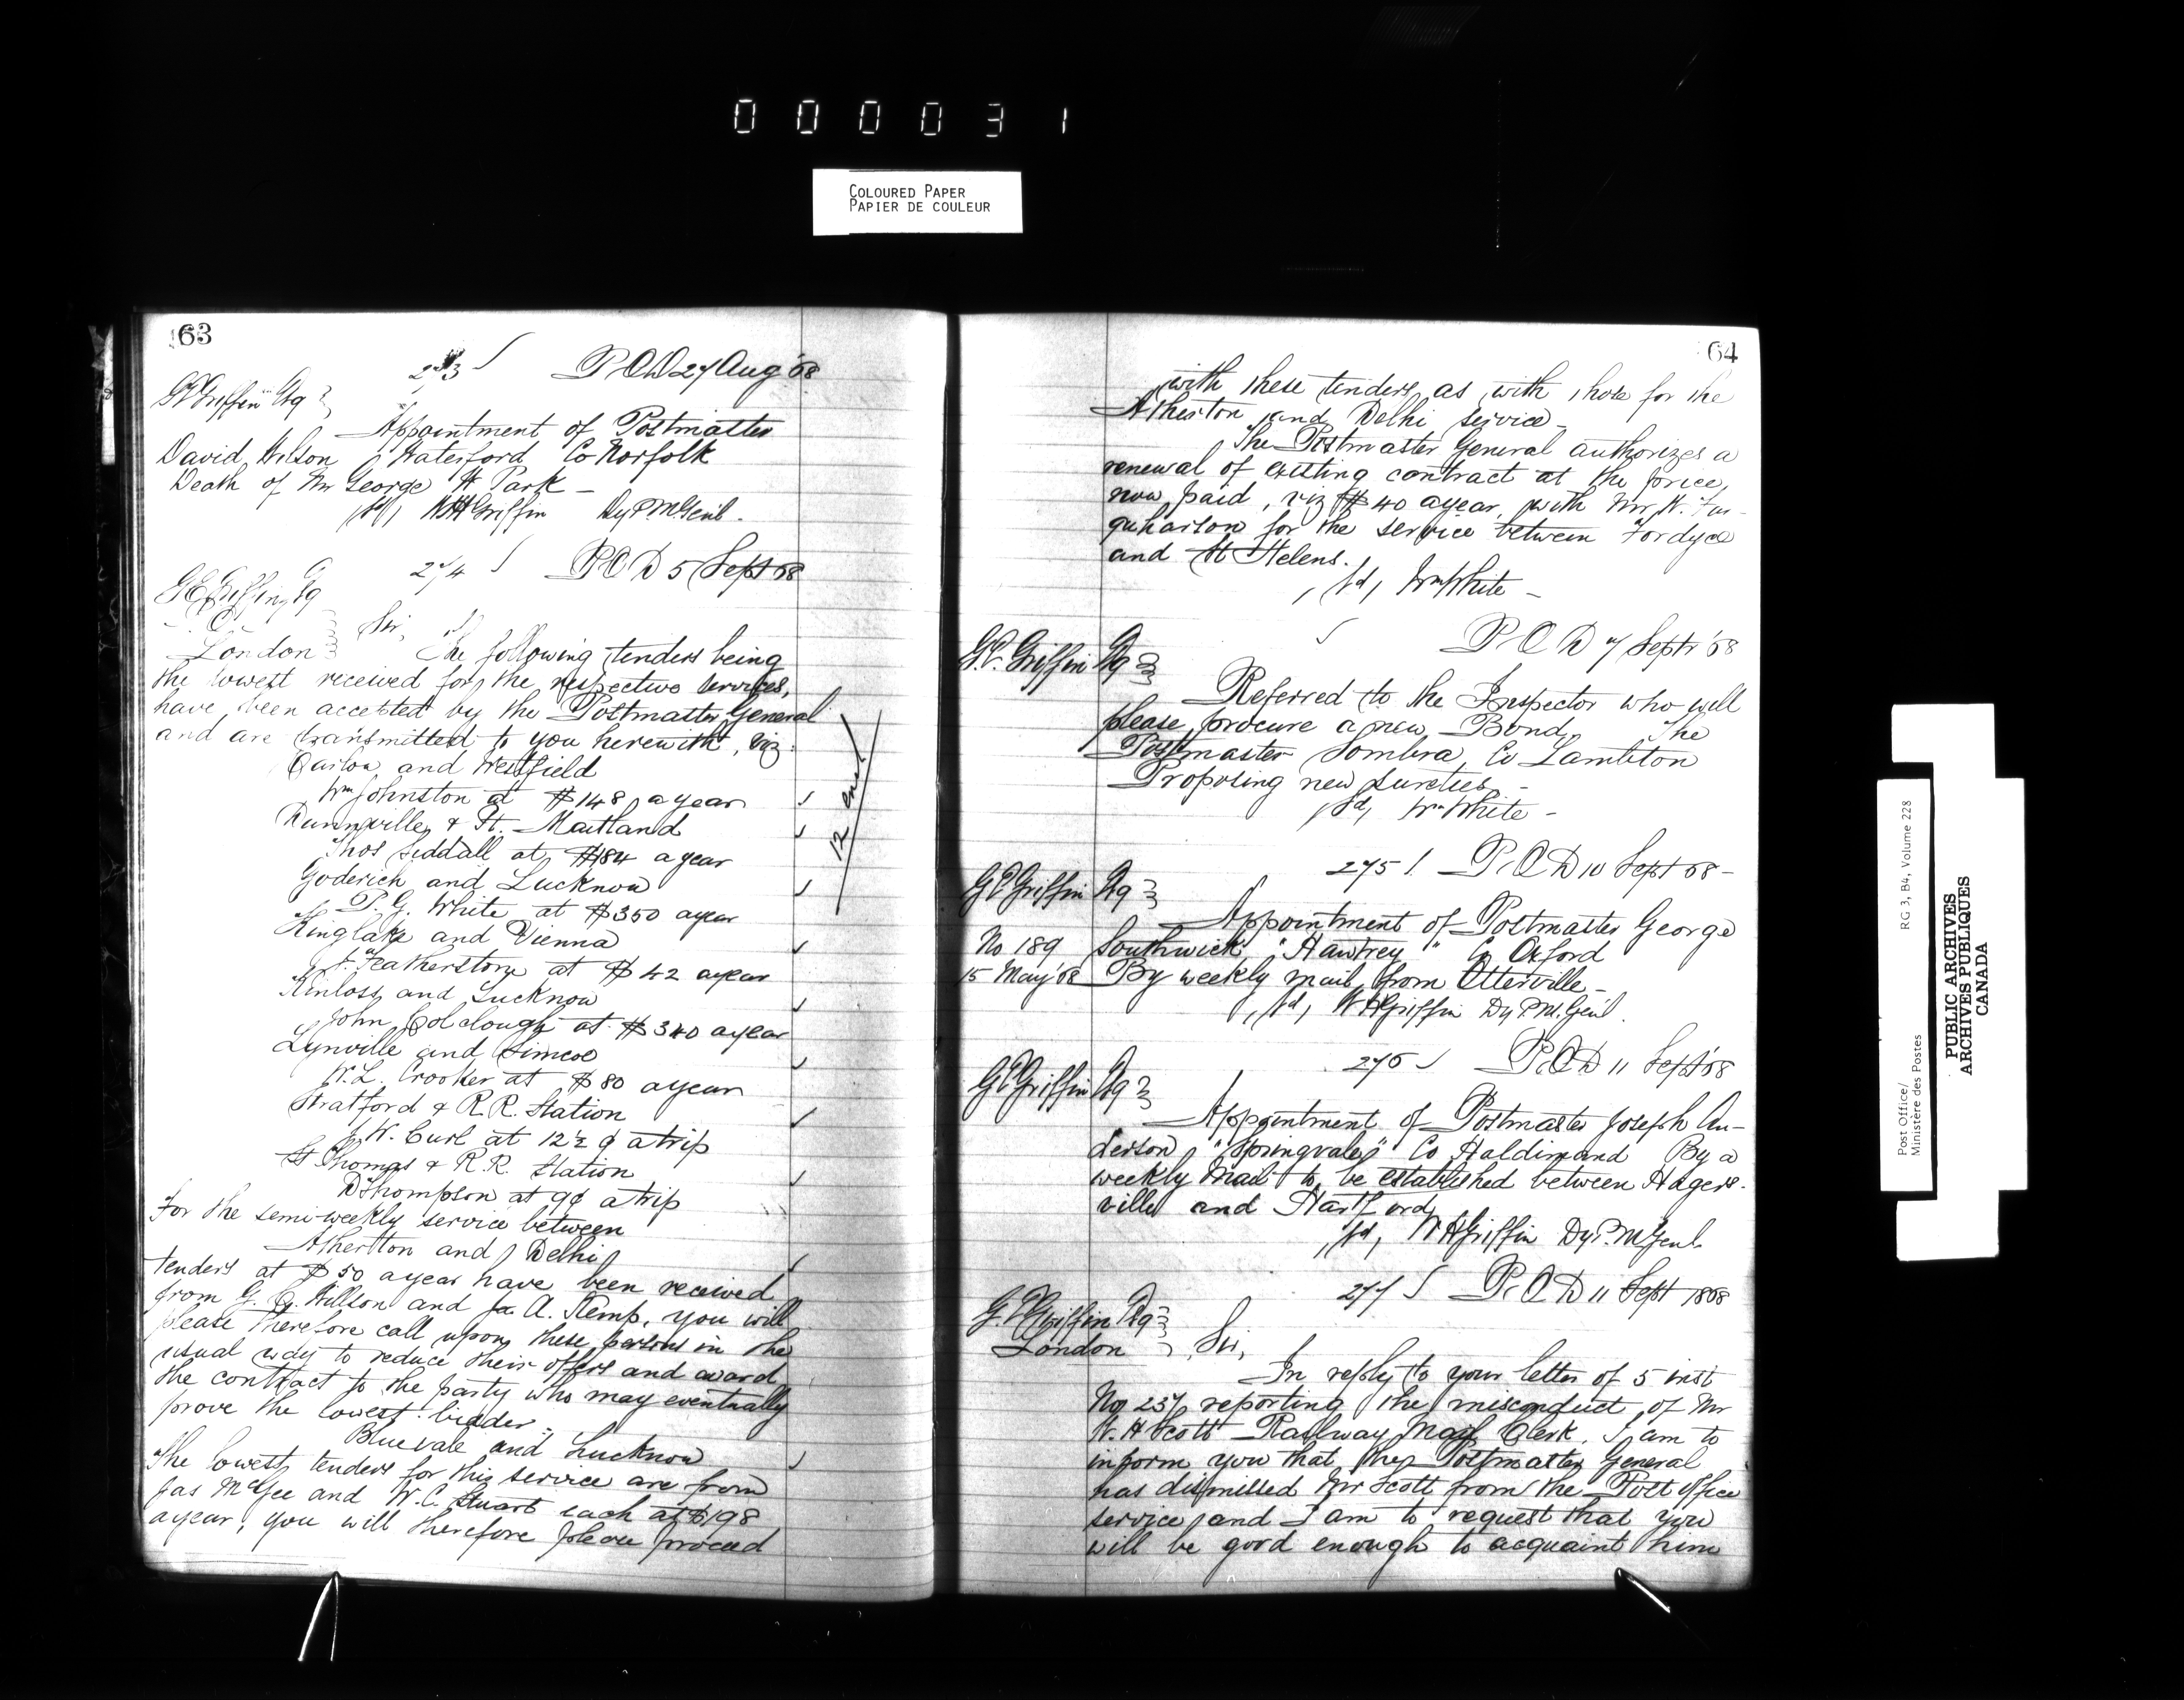 000031
COLOURED PAPER
PAPIER DE COULEUR
63
273 P.O.D 27 Aug '68
Griffin Esq
Appointment of Postmaster
David Wilson Waterford Co Norfolk
Death of Mr George W Park -
W H Griffin Dy P.M. Genl.
274 P.O.D 5 Sept 68
G E Griffin Esq
London Sir,
The following tenders being
the lowest received for the respective services,
have been accepted by the Postmaster General
and are transmitted to you herewith, viz.
and Westfield
Wm Johnston at $148 a year
Dunnville & Pt. Maitland
Thos Siddall at $184 a year
Goderich and Lucknow
P. G. White at $350 a year
Kinglake and Vienna
Featherstone at $42 a year
Kinloss and Lucknow
John Colclough at $340 a year
Lynville and Simcoe
W. L. Crooker at $80 a year
Stratford & R.R. Station
J. W. Curl at 12½ ¢ a trip
St Thomas & R.R. Station
D Thompson at 9¢ a trip
For the semi-weekly service between
Atherton and Delhi
tenders at $50 a year have been received
from G. G. Willson and A. Kemp, you will
please therefore call upon these persons in the
usual way to reduce their offers and award
the contract to the party who may eventually
prove the lowest bidder.
Bluevale and Lucknow
The lowest tenders for this service are from
Jas McGee and W. C. Stuart each at $198
a year, you will therefore please proceed
12
64
with these tenders as with those for the
Atherton and Delhi service -
The Postmaster General authorizes a
renewal of existing contract at the price
now paid, viz $40 a year, with Mr W. Far-
quharson for the service between Fordyce
and St Helens.
/sd/ Wm White -
P.O.D 7 Septr '68
G.E. Griffin Esq
Referred to the Inspector who will
please procure a new Bond. The
Postmaster Sombra, Co Lambton
Proposing new sureties -
/sd/ Wm White -
275 P.O.D 10 Sept 68 -
G E Griffin Esq
Appointment of Postmaster George
No 189 Southwick, "Hawtrey" Co Oxford
15 May '68 By weekly mail from Otterville -
/sd/ W H Griffin Dy P.M. Genl.
276 P.O.D 11 Sept '68
G E Griffin Esq
Appointment of Postmaster Joseph An-
derson, "Springvale" Co Haldimand By a
weekly mail to be established between Hagers-
ville and Hartford
/sd/ W H Griffin Dy P. M Genl.
277 P.O.D 11 Sept 1868
G. E Griffin Esq
London Sir,
In reply to your letter of 5 inst
No 237 reporting the misconduct of Mr
W. H Scott Railway Mail Clerk, I am to
inform you that the Postmaster General
has dismissed Mr Scott from the Post Office
service, and I am to request that you
will be good enough to acquaint him
Post Office/
Ministère des Postes
RG 3, B4, Volume 228
PUBLIC ARCHIVES
ARCHIVES PUBLIQUES
CANADA